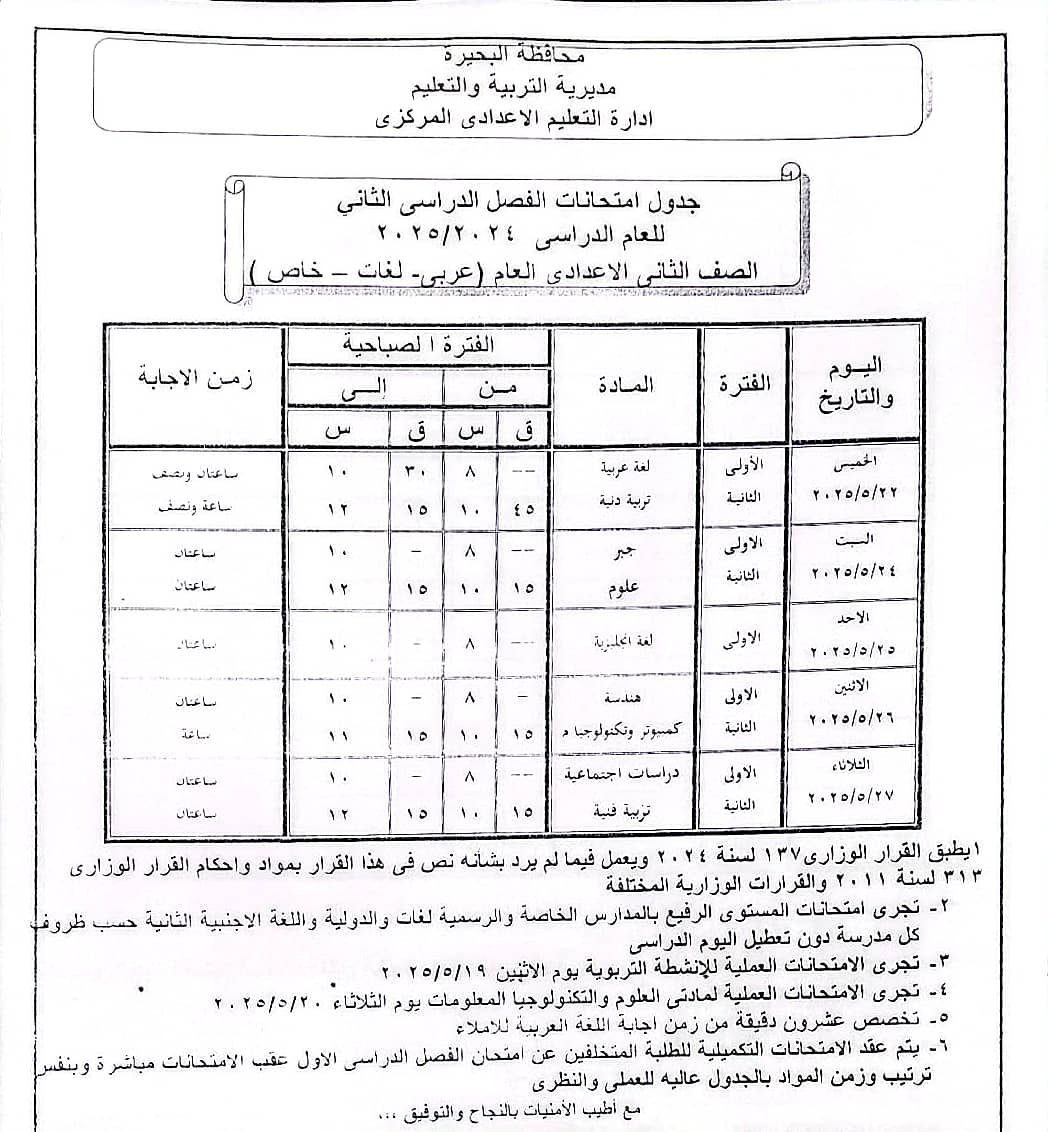 محافظة البحيرة
مديرية التربية والتعليم
ادارة التعليم الاعدادى المركزى
جدول امتحانات الفصل الدراسى الثاني
للعام الدراسى ٢٠٢٥/٢٠٢٤
الصف الثانى الاعدادى العام (عربى- لغات – خاص )
اليـوم والتاريخ | الفترة | المـادة | الفترة الصباحية | زمـن الاجابة
مـن | إلـى
ق | س | ق | س
الخميس ٢٠٢٥/٥/٢٢ | الأولى | لغة عربية | --- | ٨ | ٣٠ | ١٠ | ساعتان ونصف
الثانية | تربية دنية | ٤٥ | ١٠ | ١٥ | ١٢ | ساعة ونصف
السبت ٢٠٢٥/٥/٢٤ | الاولى | جبر | --- | ٨ | – | ١٠ | ساعتان
الثانية | علوم | ١٥ | ١٠ | ١٥ | ١٢ | ساعتان
الاحد ٢٠٢٥/٥/٢٥ | الاولى | لغة انجليزية | --- | ٨ | - | ١٠ | ساعتان
الاثنين ٢٠٢٥/٥/٢٦ | الاولى | هندسة | – | ٨ | – | ١٠ | ساعتان
الثانية | كمبيوتر وتكنولوجيا م | ١٥ | ١٠ | ١٥ | ١١ | ساعة
الثلاثاء ٢٠٢٥/٥/٢٧ | الاولى | دراسات اجتماعية | --- | ٨ | – | ١٠ | ساعتان
الثانية | تربية فنية | ١٥ | ١٠ | ١٥ | ١٢ | ساعتان
١يطبق القرار الوزارى١٣٧ لسنة ٢٠٢٤ ويعمل فيما لم يرد بشأنه نص فى هذا القرار بمواد واحكام القرار الوزارى
٣١٣ لسنة ٢٠١١ والقرارات الوزارية المختلفة
٢- تجرى امتحانات المستوى الرفيع بالمدارس الخاصة والرسمية لغات والدولية واللغة الاجنبية الثانية حسب ظروف
كل مدرسة دون تعطيل اليوم الدراسى
٣- تجرى الامتحانات العملية للإنشطة التربوية يوم الاثنين ٢٠٢٥/٥/١٩
٤- تجرى الامتحانات العملية لمادتى العلوم والتكنولوجيا المعلومات يوم الثلاثاء ٢٠٢٥/٥/٢٠
٥- تخصص عشرون دقيقة من زمن اجابة اللغة العربية للاملاء
٦- يتم عقد الامتحانات التكميلية للطلبة المتخلفين عن امتحان الفصل الدراسى الاول عقب الامتحانات مباشرة وبنفس
ترتيب وزمن المواد بالجدول عاليه للعملى والنظرى
مع أطيب الأمنيات بالنجاح والتوفيق ...